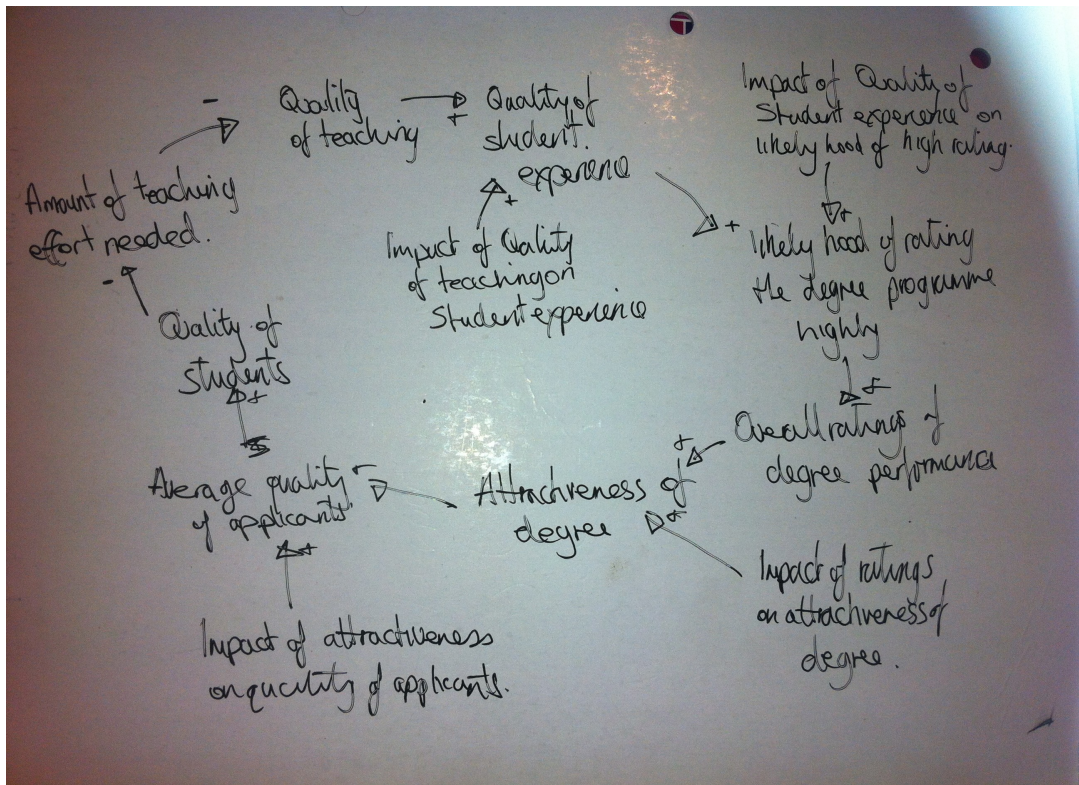 Quality
of teaching
Quality of
student.
experience
Impact of Quality of
Student experience on
likely hood of high rating.
Amount of teaching
effort needed.
Impact of Quality
of teaching on
Student experience
likely hood of rating
the degree programme
highly
Quality of
students
Overall ratings of
degree performance
Average quality
of applicants
Attractiveness of
degree
Impact of ratings
on attractiveness of
degree.
Impact of attractiveness
on quality of applicants.
-
+
+
+
+
-
+
+
+
+
-
+